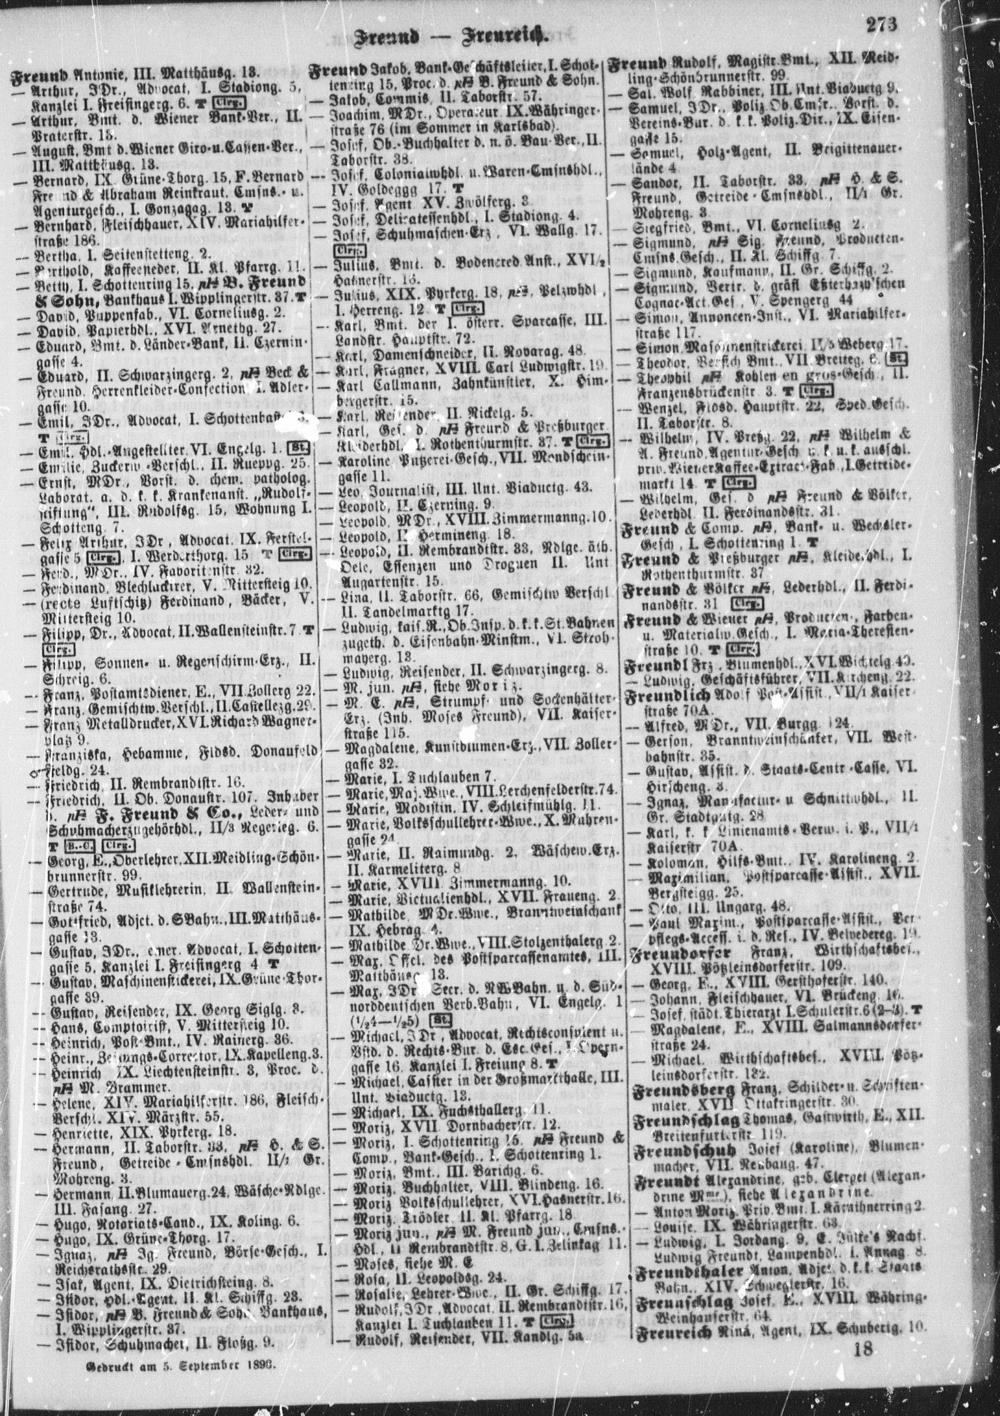 273
Freund — Freureich.
Freund Antonie, III. Matthäusg. 13.
— Arthur, JDr., Advocat, I. Stadiong. 5,
Kanzlei I. Freisingerg. 6. T Clrg.
— Arthur, Bmt. d. Wiener Bank-Ver., II.
Praterstr. 15.
— August, Bmt d. Wiener Giro- u. Cassen-Ver.,
III. Matthäusg. 13.
— Bernard, IX. Grüne-Thorg. 15, F. Bernard
Freund & Abraham Reinkraut, Cmsns.- u.
Agenturgesch., I. Gonzagag. 13. T
— Bernhard, Fleischhauer, XIV. Mariahilfer-
straße 186.
— Bertha, I. Seitenstetteng. 2.
— Berthold, Kaffeesieder, II. Kl. Pfarrg. 11.
— Betty, I. Schottenring 15, B. Freund
& Sohn, Bankhaus I. Wipplingerstr. 37. T
— David, Puppenfab., VI. Corneliusg. 2.
— David, Papierhdl., XVI. Arnethg. 27.
— Eduard, Bmt. d. Länder-Bank, II. Czernin-
gasse 4.
— Eduard, II. Schwarzingerg. 2, Beck &
Freund, Herrenkleider-Confection I. Adler-
gasse 10.
— Emil, JDr., Advocat, I. Schottenbastei 3.
T Clrg.
— Emil, Hdl.-Angestellter, VI. Engelg. 1. St.
— Emilie, Zuckerw.-Verschl., II. Rueppg. 25.
— Ernst, MDr., Vorst. d. chem. patholog.
Laborat. a. d. k. k. Krankenanst. „Rudolf-
stiftung“, III. Rudolfsg. 15, Wohnung I.
Schotteng. 7.
— Felix Arthur, JDr., Advocat, IX. Ferstel-
gasse 5 Clrg., I. Werderthorg. 15 T Clrg.
— Ferd., MDr., IV. Favoritenstr. 32.
— Ferdinand, Blechlackirer, V. Mittersteig 10.
— (recte Luftschitz) Ferdinand, Bäcker, V.
Mittersteig 10.
— Filipp, Dr., Advocat, II. Wallensteinstr. 7. T
Clrg.
— Filipp, Sonnen- u. Regenschirm-Erz., II.
Schreig. 6.
— Franz, Postamtsdiener, E., VII. Zollerg 22.
— Franz, Gemischtw. Verschl., II. Castellezg. 29.
— Franz Metalldrucker, XVI. Richard Wagner-
platz 9.
— Franziska, Hebamme, Fldsd. Donaufeld
Feldg. 24.
— Friedrich, II. Rembrandtstr. 16.
— Friedrich, II. Ob. Donaustr. 107. Inhaber
d. F. Freund & Co., Leder- und
Schuhmacherzugehörhdl., II/3 Regerleg. 6.
T B.-C. Clrg.
— Georg, E., Oberlehrer, XII. Meidling-Schön-
brunnerstr. 99.
— Gertrude, Musiklehrerin, II. Wallenstein-
straße 74.
— Gottfried, Adjct. d. SBahn., III. Matthäus-
gasse 13.
— Gustav, JDr., emer. Advocat, I. Schotten-
gasse 5, Kanzlei I. Freisingerg. 4 T
— Gustav, Maschinenstickerei, IX. Grüne-Thor-
gasse 39.
— Gustav, Reisender, IX. Georg Siglg. 8.
— Hans, Comptoirist, V. Mittersteig 10.
— Heinrich, Post-Bmt., IV. Rainerg. 36.
— Heinr., Zeitungs-Corrector, IX. Kapelleng. 3.
— Heinrich IX. Liechtensteinstr. 3, Proc. d.
M. Brammer.
— Helene, XIV. Mariahilferstr. 186, Fleisch-
Verschl. XIV. Märzstr. 55.
— Henriette, XIX. Pyrkerg. 18.
— Hermann, II. Taborstr. 33, H. & S.
Freund, Getreide-Cmsnshdl. II/1 Gr.
Mohreng. 3.
— Hermann, II. Blumauerg. 24, Wäsche-Ndlge.
III. Fasang. 27.
— Hugo, Notariats-Cand., IX. Koling. 6.
— Hugo, IX. Grüne-Thorg. 17.
— Ignaz, Ig. Freund, Börse-Gesch., I.
Reichsrathsstr. 29.
— Isak, Agent, IX. Dietrichsteing. 8.
— Isidor, Hdl.-Agent, II. Kl. Schiffg. 23.
— Isidor, B. Freund & Sohn, Bankhaus,
I. Wipplingerstr. 37.
— Isidor, Schuhmacher, II. Floßg. 9.
Gedruckt am 5. September 1896.
Freund Jakob, Bank-Geschäftsleiter, I. Schot-
tenring 15, Proc. d. B. Freund & Sohn.
— Jakob, Commis, II. Taborstr. 57.
— Joachim, MDr., Operateur IX. Währinger-
straße 76 (im Sommer in Karlsbad).
— Josef, Ob.-Buchhalter d. n. ö. Bau-Ver., II.
Taborstr. 38.
— Josef, Colonialwhdl. u. Waren-Cmsnshdl.,
IV. Goldegg 17. T
— Josef, Agent XV. Zwölferg. 3.
— Josef, Delicatessenhdl., I. Stadiong. 4.
— Josef, Schuhmaschen-Erz., VI. Wallg. 17.
Clrg.
— Julius, Bmt. d. Bodencred. Anst., XVI/2
Hasnerstr. 13.
— Julius, XIX. Pyrkerg. 18, Pelzwhdl.,
I. Herreng. 12. T Clrg.
— Karl, Bmt. der I. österr. Sparcasse, III.
Landstr. Hauptstr. 72.
— Karl, Damenschneider, II. Novarag. 48.
— Karl, Fragner, XVIII. Carl Ludwigstr. 19.
— Karl Callmann, Zahnkünstler, X. Him-
bergerstr. 15.
— Karl, Reisender, II. Rickelg. 5.
— Karl, Ges. d. Freund & Preßburger
Kleiderhdl. I. Rothenthurmstr. 37. T Clrg.
— Karoline Putzerei-Gesch., VII. Mondschein-
gasse 11.
— Leo, Journalist, III. Unt. Viaductg. 43.
— Leopold, II. Czerning. 9.
— Leopold, MDr., XVIII. Zimmermanng. 10.
— Leopold, II. Hermineng. 18.
— Leopold, II. Rembrandtstr. 33, Ndlge. äth.
Oele, Essenzen und Droguen II. Unt.
Augartenstr. 15.
— Lina, II. Taborstr. 66, Gemischtw. Verschl.
II. Tandelmarktg 17.
— Ludwig, kais. R., Ob. Insp. d. k. k. St. Bahnen
zugeth. d. Eisenbahn-Minstm., VI. Stroh-
mayerg. 13.
— Ludwig, Reisender, II. Schwarzingerg. 8.
— M. jun. siehe Moriz.
— M. E., Strumpf- und Sockenhälter-
Erz. (Inh. Moses Freund), VII. Kaiser-
straße 115.
— Magdalene, Kunstblumen-Erz., VII. Zoller-
gasse 32.
— Marie, I. Tuchlauben 7.
— Marie, Maj. Wwe., VIII. Lerchenfelderstr. 74.
— Marie, Modistin, IV. Schleifmühlg. 11.
— Marie, Volksschullehrer-Wwe., X. Mahren-
gasse 24.
— Marie, II. Raimundg. 2. Wäschew. Erz.
II. Karmeliterg. 8.
— Marie, XVIII. Zimmermanng. 10.
— Marie, Victualienhdl., XVII. Fraueng. 2.
— Mathilde, MDr. Wwe., Branntweinschank
IX. Hebrag. 4.
— Mathilde Dr. Wwe., VIII. Stolzenthalerg. 2.
— Max, Offcl. des Postsparcassenamtes, III.
Matthäusg. 13.
— Max, JDr. Secr. d. NWBahn u. d. Süd-
norddeutschen Verb. Bahn, VI. Engelg. 1
(1/24—1/25) St.
— Michael, JDr., Advocat, Rechtsconsulent u.
Vstd. d. Rechts-Bur. d. Esc. Ges., I. Opern-
gasse 16, Kanzlei I. Freiung 8. T
— Michael, Cassier in der Großmarkthalle, III.
Unt. Viaductg. 13.
— Michael, IX. Fuchsthallerg. 11.
— Moriz, XVII. Dornbacherstr. 12.
— Moriz, I. Schottenring 15, Freund &
Comp., Bank-Gesch., I. Schottenring 1.
— Moriz, Bmt., III. Barichg. 6.
— Moriz, Buchhalter, VIII. Blindeng. 16.
— Moriz Volksschullehrer, XVI. Hasnerstr. 16.
— Moriz, Trödler, II. Kl. Pfarrg. 18
— Moriz jun., M. Freund jun., Cmsns.-
Hdl., II Rembrandtstr. 8, G. I. Zelinkag 11.
— Moses, siehe M. E
— Rosa, II. Leopoldsg. 24.
— Rosalie, Lehrer-Wwe., II. Gr. Schiffg. 17.
— Rudolf, JDr., Advocat, II. Rembrandtstr. 16,
Kanzlei I. Tuchlauben 11. T Clrg.
— Rudolf, Reisender, VII. Kandlg. 5a
Freund Rudolf, Magistr. Bmt., XII. Meid-
ling-Schönbrunnerstr. 99.
— Sal. Wolf, Rabbiner, III. Unt. Viaductg 9.
— Samuel, JDr., Poliz. Ob. Cmsr., Vorst. d.
Vereins-Bur. d. k. k. Poliz. Dir., IX. Eisen-
gasse 15.
— Samuel, Holz-Agent, II. Brigittenauer-
lände 4.
— Sandor, II. Taborstr. 33, H. & S.
Freund, Getreide-Cmsnshdl., II/1 Gr.
Mohreng. 3.
— Siegfried, Bmt., VI. Corneliusg 2.
— Sigmund, Sig. Freund, Producten-
Cmsns. Gesch., II. Kl. Schiffg. 7.
— Sigmund, Kaufmann, II. Gr. Schiffg. 2.
— Sigmund, Vertr. d. gräfl. Eszterházy'schen
Cognac-Act. Ges., V. Spengerg 44
— Simon, Annoncen-Inst., VI. Mariahilfer-
straße 117.
— Simon, Maschinenstrickerei II/5 Weberg. 17.
— Theodor, Versich. Bmt., VII. Breiteg. 6. St.
— Theophil Kohlen en gros-Gesch., II.
Franzensbrückenstr 3. T Clrg.
— Wenzel, Flosd. Hauptstr. 22, Sped. Gesch.
II. Taborstr. 8.
— Wilhelm, IV. Preßg. 22, Wilhelm &
A. Freund, Agentur-Gesch. u. k. u. k. ausschl.
priv. Wiener Kaffee-Extract-Fab., I. Getreide-
markt 14. T Clrg.
— Wilhelm, Ges. d Freund & Völker,
Lederhdl. II. Ferdinandsstr. 31.
Freund & Comp. Bank- u. Wechsler-
Gesch., I. Schottenring 1. T
Freund & Preßburger Kleiderhdl., I.
Rothenthurmstr. 37
Freund & Völker Lederhdl., II. Ferdi-
nandsstr. 31 Clrg.
Freund & Wiener Producten-, Farben-
u. Materialw. Gesch., I. Maria-Theresien-
straße 10. T Clrg.
Freundl Frz., Blumenhdl., XVI. Wichtelg 49.
— Ludwig, Geschäftsführer, VII. Kircheng. 22.
Freundlich Adolf Post-Assist., VII/1 Kaiser-
straße 70A.
— Alfred, MDr., VII. Burgg. 124.
— Gerson, Branntweinschänker, VII. West-
bahnstr. 35.
— Gustav, Assist. d. Staats-Centr.-Casse, VI.
Hirscheng. 3.
— Ignaz, Manufactur- u Schnittwhdl., II.
Gr. Stadtgutg. 28
— Karl, k. k. Linienamts-Verw. i. P., VII/1
Kaiserstr 70A.
— Koloman, Hilfs-Bmt., IV. Karolineng 2.
— Maximilian, Postsparcasse-Assist., XVII.
Bergsteigg. 25.
— Otto, III. Ungarg. 48.
— Paul Maxim., Postsparcasse-Assist., Ver-
pflegs-Access. i. d. Res., IV. Belvedereg. 19.
Freundorfer Franz, Wirthschaftsbes.,
XVIII. Pötzleinsdorferstr. 109.
— Georg, E., XVIII. Gersthoferstr. 140.
— Johann, Fleischhauer, VI. Brückeng. 16.
— Josef, städt. Thierarzt I. Schulerstr. 6 (2–3). T
— Magdalene, E., XVIII. Salmannsdorfer-
straße 24.
— Michael, Wirthschaftsbes., XVIII. Pötz-
leinsdorferstr. 132.
Freundsberg Franz, Schilder- u. Schriften-
maler, XVII Ottakringerstr. 30.
Freundschlag Thomas, Gastwirth, E., XII.
Breitenfurterstr 119.
Freundschuh Josef (Karoline), Blumen-
macher, VII. Neubaug. 47.
Freundt Alexandrine, geb. Clerget (Alexan-
drine Mme), siehe Alexandrine.
— Anton Moriz, Priv. Bmt. I. Kärnthnerring 2.
— Louise, IX. Währingerstr. 63.
— Ludwig, I. Jordang. 9, E. Jülke's Nachf.
Ludwig Freundt, Lampenhdl. I. Annag 8.
Freundthaler Anton, Adjct d. k. k. Staats-
Bahn., XIV. Schweglerstr. 16.
Freunschlag Josef, E., XVIII. Währing-
Weinhauserstr. 64.
Freureich Nina, Agent, IX. Schubertg. 10.
18